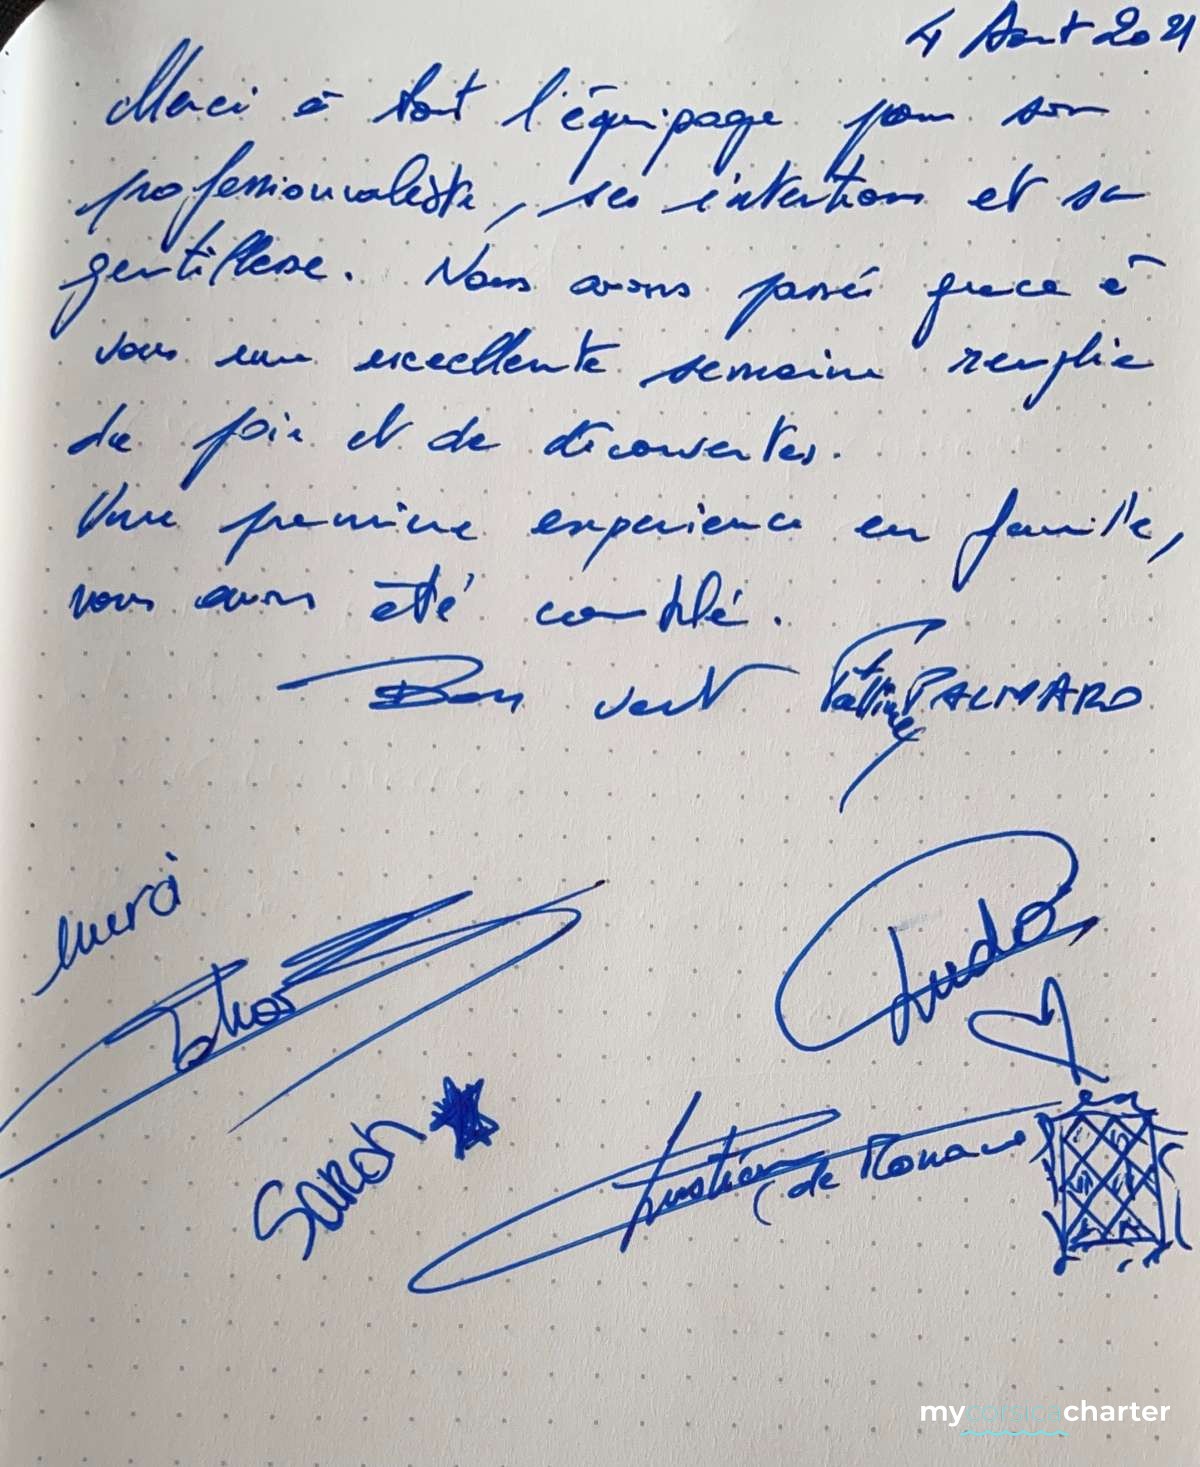 4 Aout 2021
Merci à tout l'équipage pour son
professionnaliste, ses intentions et sa
gentillesse. Nous avons passé grace à
vous une excellente semaine remplie
de joie et de découvertes.
Une première experience en famille,
nous avons été comblé.
Bon vent PALMARO
merci
Ludo
SaRah
(de Monaco)
mycorsicacharter